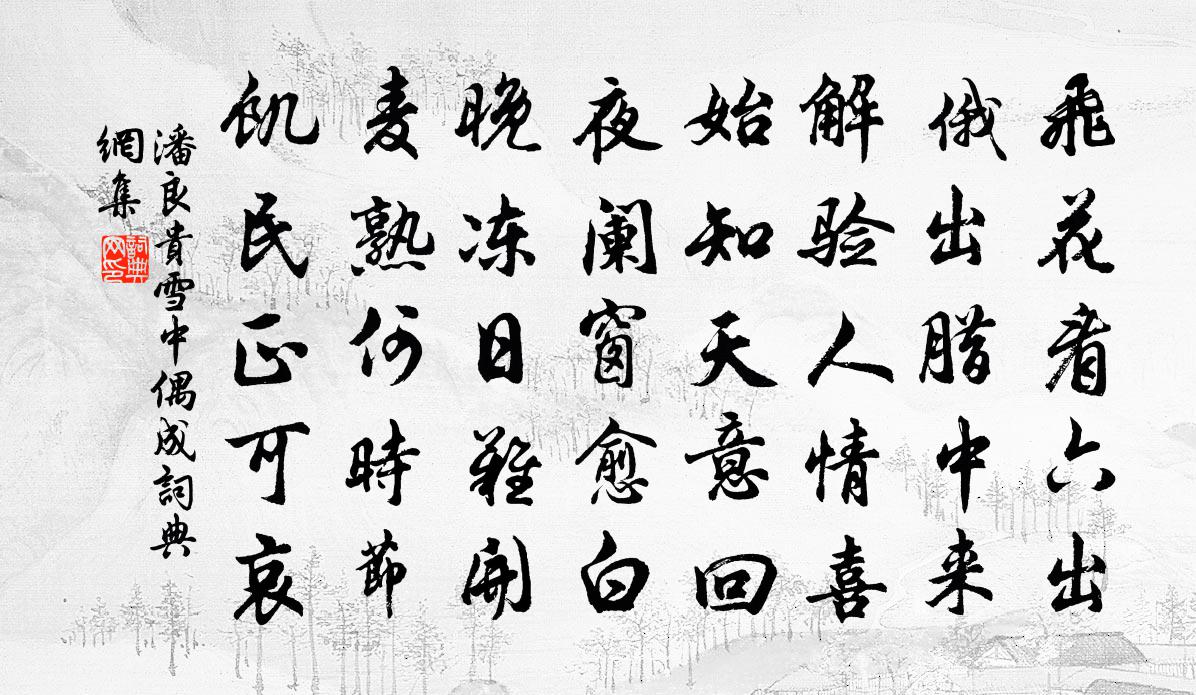 飛花看六出
俄出腊中来
解验人情喜
始知天意回
夜阑窗愈白
晚冻日難開
麦熟何時節
飢民正可哀
潘良貴雪中偶成詞典
網集
詞典
网印